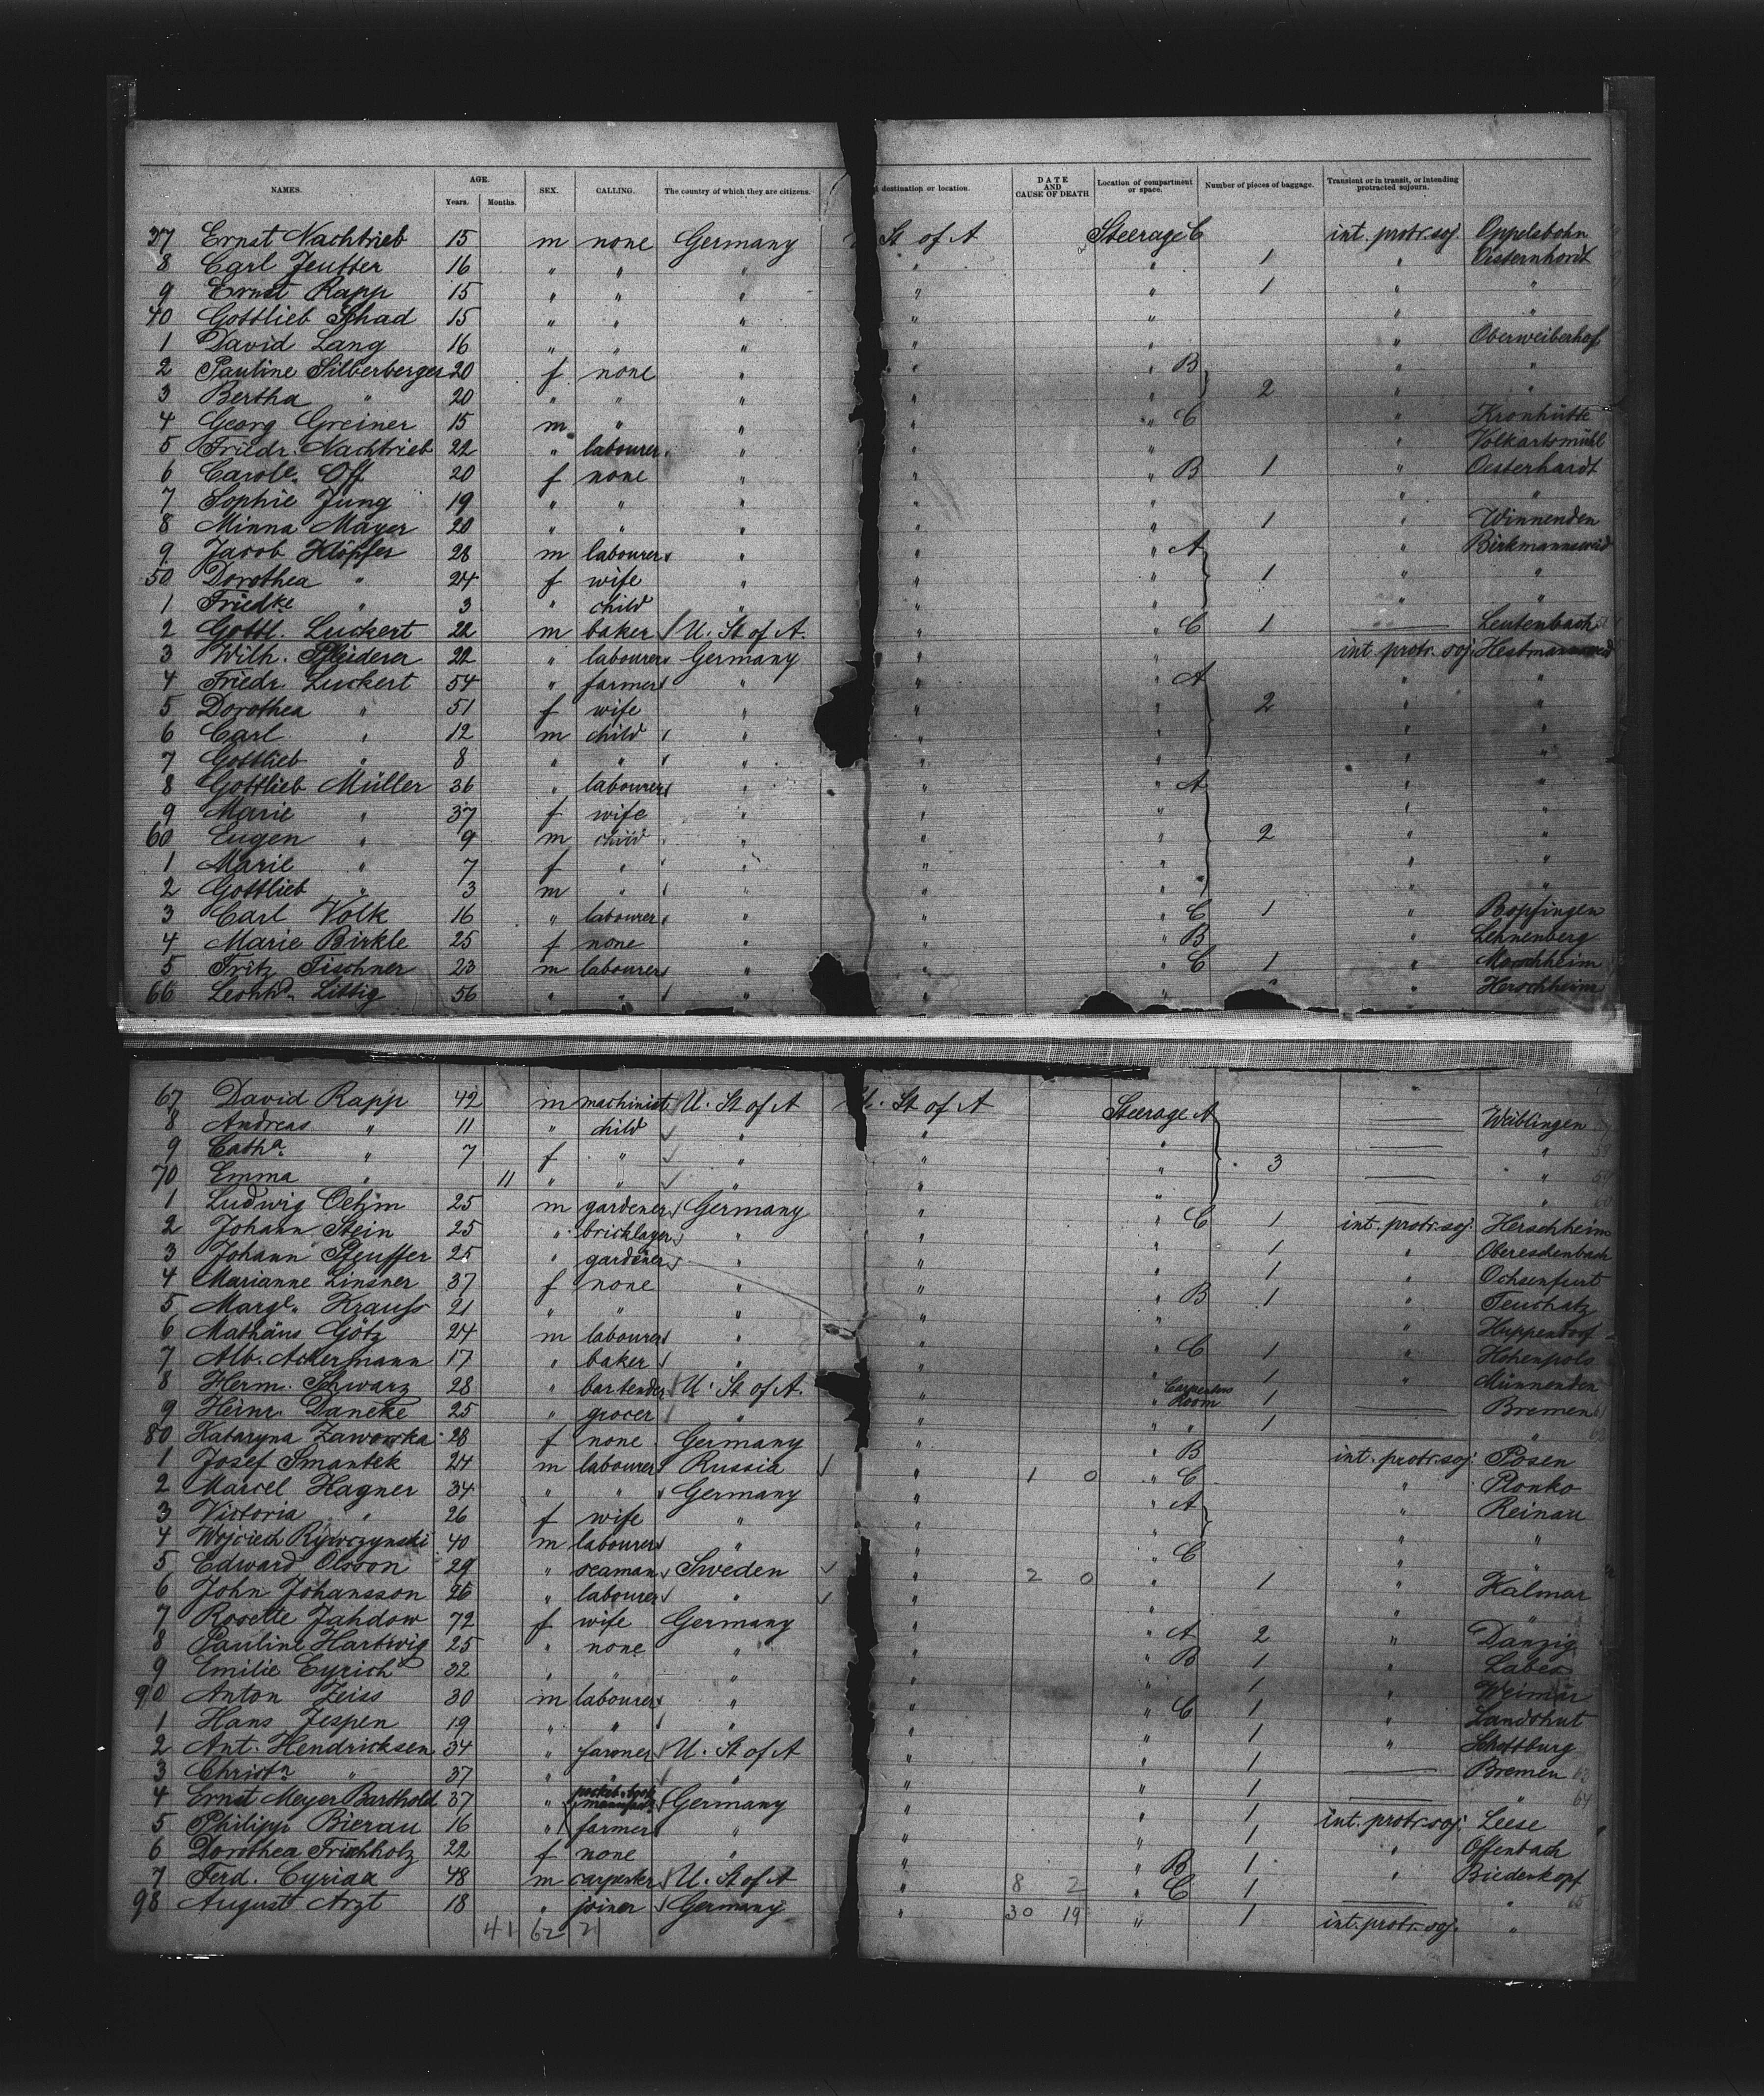 NAMES. AGE. Years. Months. SEX. CALLING. The country of which they are citizens. destination or location. DATE AND CAUSE OF DEATH Location of compartment or space. Number of pieces of baggage. Transient or in transit, or intending protracted sojourn.
37 Ernst Nachtrieb 15 m none Germany St of A Steerage C int. protr. soj. Oppelsbohn
8 Carl Jeutter 16 " " " " " 1 "
9 Ernst Rapp 15 " " " " " 1 " "
40 Gottlieb Schad 15 " " " " " " "
1 David Lang 16 " " " " " " Oberweiberhof
2 Pauline Silberberger 20 f none " " B " "
3 Bertha " 20 " " " " " 2 " "
4 Georg Greiner 15 m " " " " C " Kronhütte
5 Friedr. Nachtrieb 22 " labourer " " " " Volkartsmühl
6 Carole. Off 20 f none " " " B 1 " Oesterhardt
7 Sophie Jung 19 " " " " " " "
8 Minna Mayer 20 " " " " " 1 " Winnenden
9 Jacob Klöpfer 28 m labourer " " " A " Birkmannsweid
50 Dorothea " 24 f wife " " " 1 " "
1 Friedke " 3 " child " " " " "
2 Gottl. Luckert 22 m baker U. St of A. " " C 1 Leutenbach
3 Wilh. Pfleiderer 22 " labourer Germany " " int. protr. soj.
4 Friedr. Luckert 54 " farmer " " " A " "
5 Dorothea " 51 f wife " " " 2 " "
6 Carl " 12 m child " " " " "
7 Gottlieb " 8 " " " " " " "
8 Gottlieb Müller 36 " labourer " " " A " "
9 Marie " 37 f wife " " " " "
60 Eugen " 9 m child " " " 2 " "
1 Marie " 7 f " " " " " "
2 Gottlieb " 3 m " " " " " "
3 Carl Volk 16 " labourer " " " C 1 " Bopfingen
4 Marie Birkle 25 f none " " " B " Lehnenberg
5 Fritz Tischner 23 m labourer " " " C 1 "
66 Leonhd. Littig 56 " " " " " " " Herschheim
67 David Rapp 42 m machinist U. St of A U. St of A Steerage A Waiblingen
8 Andreas " 11 " child " " " "
9 Catha. " 7 f " " " " 3 "
70 Emma " 11 " " " " " "
1 Ludwig Oehm 25 m gardener Germany " " C 1 int. protr. soj. Herschheim
2 Johann Stein 25 " bricklayer " " " 1 " Obereschenbach
3 Johann Pfeuffer 25 " gardener " " " 1 " Ochsenfurt
4 Marianne Linsner 37 f none " " " B 1 " Teuchatz
5 Margle. Krauss 21 " " " " " " Huppendorf
6 Mathäus Götz 24 m labourer " " " C 1 " Hohenpolo
7 Alb. Ackermann 17 " baker " " " 1 " Münnenden
8 Herm. Schwarz 28 " bartender U. St of A. " " Carpenters Room 1 Bremen
9 Heinr. Daneke 25 " grocer " " " " 1 "
80 Kataryna Zaworska 28 f none Germany " " B int. protr. soj. Posen
1 Josef Smantek 24 m labourer Russia " 1 0 " C " Plonko
2 Marcel Hagner 34 " " Germany " " A " Reinau
3 Victoria " 26 f wife " " " " "
4 Wojciech 40 m labourer " " " C " "
5 Edward Olsson 29 " seaman Sweden " 2 0 " 1 " Kalmar
6 John Johansson 26 " labourer " " " " "
7 Rosette Jahdow 72 f wife Germany " " A 2 " Danzig
8 Pauline Hartwig 25 " none " " " B 1 " Labes
9 Emilie Eyrich 32 " " " " " 1 " Weimar
90 Anton Zeiss 30 m labourer " " " C 1 " Landshut
1 Hans Jespen 19 " " " " " 1 " Schottburg
2 Ant. Hendricksen 34 " farmer U. St of A " " 1 Bremen
3 Christn. " 37 " " " " " 1 "
4 Ernst Meyer Barthold 37 " pocket-book Germany " " 1 int. protr. soj. Leese
5 Philipp Bierau 16 " farmer " " " 1 " Offenbach
6 Dorothea Frichholz 22 f none " " " B 1 " Biedenkopf
7 Ferd. Cyriax 48 m carpenter U. St of A " 8 2 " C 1 "
98 August Arzt 18 " joiner Germany " 30 19 " 1 int. protr. soj. "
41 62 21